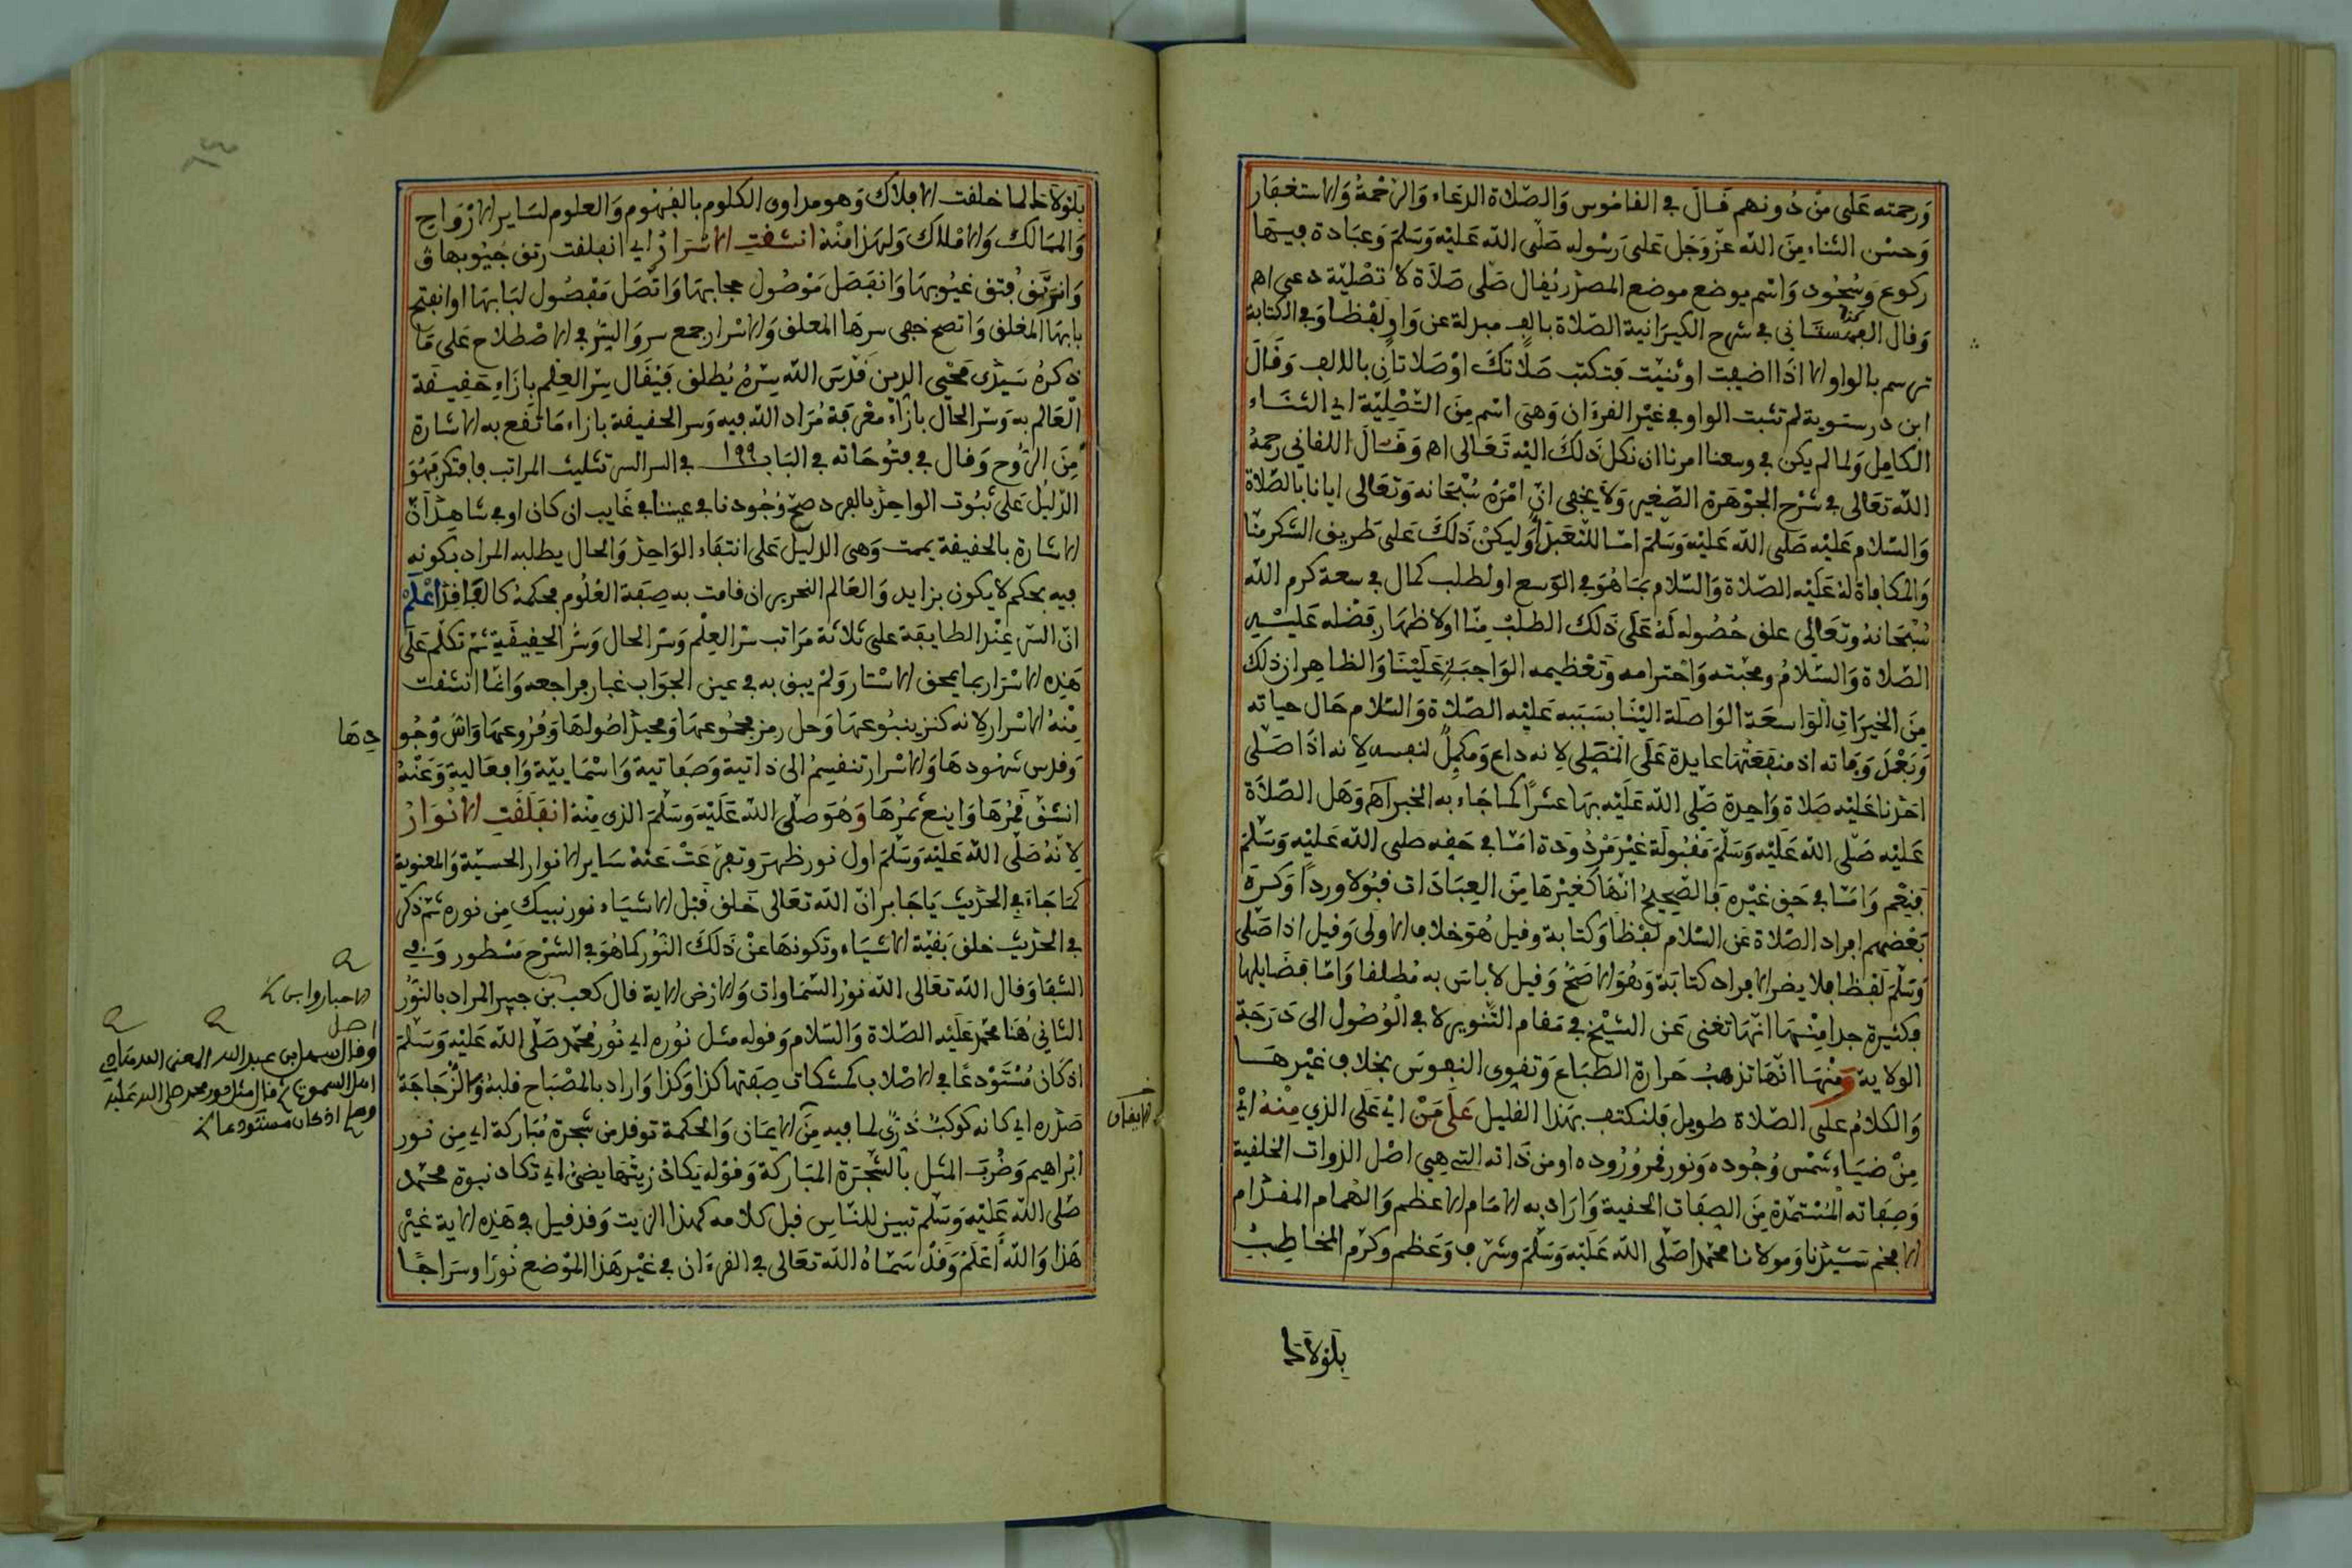 وَرحمته عَلى مَن دُونهم قَال في القاموس وَالصّلاة الدعَاء وَالرَّحْمَةُ وَالاستغفار
وَحسْن الثناء مِنَ اللّه عَزّ وَجَل عَلى رَسُوله صَلّى اللّه عَليْه وَسَلمَ وَعبَادة فيهَا
ركوع وَسُجُود وَاسْم يوضع موضع المصدر يُقال صَلّى صَلاَة لا تصْليَة دعى اهـ
وَقال القهستاني في شرح الكيدَانية الصّلاة بالف مبدلة عن وَاو لفظا وَفي الكتابة
ترسم بالواو الا اذَا اضيفت او ثنيّت فتكتب صَلاتكَ اوْ صَلاتان بالالف وَقَالَ
ابن درستوية لم تثبت الواو في غيْر القرءَان وَهي اسْم مِنَ التّصْلِيَة اي الثنَاء
الكَامِل وَلما لم يكن في وسعنا امرنا ان نكل ذَلكَ اليْه تَعَالى اهـ وَقَالَ اللقاني رحمهُ
اللّه تعَالى في شرْح الجوْهَرة الصّغير وَلا يخفى انّ امْرهُ سُبْحَانه وَتعَالى ايانا بالصّلاة
وَالسّلام عَليْه صَلى اللّه عَليْه وَسَلمَ امّا للتّعَبّد أوْ ليكنْ ذَلكَ عَلى طَريق الشكر منّا
وَالمكافاة لهُ عَليْه الصّلاة وَالسّلام بمَا هُوَ في الوسع او لطلب كمال في سعة كرم اللّه
سُبْحَانهُ وتعَالى علق حُصُوله لهُ عَلى ذَلك الطلب مِنّا اولاظهَار فضْله عَليْه
الصّلاة وَالسّلامُ ومحبّته وَاحْترامه وَتعْظيمه الوَاجبَة عَليْنَا وَالظاهِر ان ذلك
مِنَ الخيرَات الوَاسعَة الوَاصلَة اليْنا بسَببه عَليْه الصّلاة وَالسّلام حَال حياته
وَبَعْدَ وَفاته اذ منفعَتهَا عايدة عَلَى المُصَلى لانه داع وَمكمل لنفسه لانه اذَا صَلى
احَدنا عَليْه صَلاة وَاحِدة صَلّى اللّه عَلَيْه بهَا عشرًا كمَا جَاء به الخبر اهـ وَهَل الصّلاة
عَليْه صَلى اللّه عَلَيْه وَسَلّمَ مَقبُولَة غيْر مَرْدُودَة امّا في حَقه صَلى اللّه عَليْه وَسَلّمَ
فنعَم وَامّا في حَق غيْره فالصّحِيحُ انهَا كَغيْرهَا مِنَ العِبَادَات قبُولا وردًا وَكرَهَ
بَعْضهم افراد الصّلاة عَن السّلام لفظا وَكتابة وقيل هُوَ خلاف الاولى وَقيل اذا صَلّى
وَسَلّمَ لفظا فلا يضر الافراد كتابَة وَهُوَ الاصَحُّ وَقيل لا باسَ به مُطلقا وَامّا فضَايلها
فكثيرة جدا مِنْهَا انهَا تغنى عَن الشيْخ في مَقام التّنوير لا في الوُصُول الى دَرَجَة
الولاية وَمْنهَا انّهَا تذهبُ حَرارة الطبَاع وَتقوى النفوسَ بخلاف غيْرهَا
وَالكلامُ عَلى الصّلاة طويل فلنكتف بهَذا القليل عَلَى مَنْ ايْ عَلَى الذي مِنْهُ ايْ
مِنْ ضيَاء شمْس وُجُوده وَنور قمر وُرُوده او من ذَاته التي هِيَ اصْل الذوات الخلقية
وَصِفاته المُسْتمدَّة مِنَ الصفَات الحقية وَارَادَ به الامَام الاعظم وَالهُمام المقدام
الافخم سَيّدنا وَمولانا محَمّدا صَلّى اللّه عَلَيْه وَسَلّمَ وشرّف وَعَظم وكرّم المخَاطبُ
بلولاك
بلولاك لما خلقت الافلاك وَهو مداوى الكلوم بالفُهوم وَالعلوم لسَاير الازْوَاج
وَالممالك وَالامْلاك وَلهَذا مِنْهُ انشقتِ الاسْرَارُ اي انفلقت رتق جُيُوبهَا
وَانرَتَقَ فتق غيُوبهَا وَانفَصَل مَوْصُول حجابهَا وَاتّصَل مَفْصُول لبَابهَا او انفتح
بابهَا المغلق وَاتضح خفى سرهَا المعلق وَالاسْرار جمع سر وَالسّرّ في الاصْطلاح عَلى مَا
ذكرهُ سَيّدى محْيى الدين قدّسَ اللّه سِرّهُ يُطلق فيُقَال سِرّ العِلم بازَاء حَقِيقة
العَالم به وَسرّ الحَال بازَاء معْرفة مُرَاد اللّه فيه وَسر الحقيقة بازاء مَا تقع به الاشارة
مِنَ الرّوح وَقال في فتُوحَاته في البَاب ١٩٩ في السر السر تثليث المراتب فافتكر فهُوَ
الدّليْل عَلى ثبُوت الواحِد بالفرد صحّ وُجُودنا في عيننا في غَايب ان كان او في شاهِد انّ
الاشارة بالحقيقة يممت وَهى الدليل عَلى انتفاء الوَاحِد وَالحال يطلبه المراد بكونه
فيه بحكم لا يكون بزايد وَالعَالم النحرير ان قامت به صِفَة العُلُوم محكمة كالفَاقد اعْلَمْ
انّ السّر عِنْدَ الطايفَة عَلى ثلاثة مَرَاتب سرّ العِلْم وَسرّ الحال وَسرُّ الحقِيقَة ثمّ تكلّم عَلَى
هَذِه الاسْرَار بما يمحق الاسْتار وَلمْ يبق به في عين الجوَاب غبار فراجعه وَانمّا انشقت
مِنْهُ الاسْرار لانه كنز ينبُوعهَا وَحل رمز مجمُوعهَا وَمحيدْ اصُولهَا وَفُرُوعهَا وَاسُّ وُجُو
دهَا
وَقدس شهُودهَا وَالاسْرار تنقسمُ الى ذاتية وَصفاتية وَاسْمَايية وَافعَالية وَعَنْهُ
انشقّ قمرُهَا وَاينع ثمرُهَا وَهُوَ صَلّى اللّه عَلَيْهِ وَسَلّمَ الذى مِنْهُ انفَلَقَتِ الانْوَارُ
لانّهُ صَلّى اللّه عَليْه وَسَلّمَ اول نور ظهرَ وتفرّعَتْ عَنْهُ سَاير الانوار الحسيّة وَالمعنوية
كمَا جَاءَ في الحَدِيث يَا جَابر انّ اللّه تعَالى خَلق قبْل الاشيَاء نور نبيك مِن نوره ثمّ ذكر
في الحَدِيث خلق بَقيّة الاشيَاء وتكونهَا عنْ ذَلكَ النّوُر كما هُوَ في الشرْح مَسْطور وَفي
الشفا وَقال اللّه تعَالى اللّه نورُ السَّمَاوات وَالارْض الاية قال كعب بن جبير المراد بالنوُر
الاحبار وابن
الثاني هُنَا محمّد عَلَيْه الصّلاة وَالسّلام وَقوله مثل نُوره اي نُور مُحمّد صَلّى اللّه عَليْه وَسَلّمَ
اصل
وقال سهل ابن عبد الله المعنى الله هادي
اهل السموات ثم قال مثل نور محمد صلى الله عليه
وسلم اذ كان مستودعا
اذ كَانَ مُسْتَوْدعًا في الاصْلاب كمشكات صِفَتها كذا وَكذا وَاراد بالمصْباح قلبهُ وَالزّجَاجَة
صَدْره اي كانه كوكبٌ دُرّي لما فيه مِنَ الايمَان وَالحكمة توقد من شجرة مُبَاركة اي مِن نور
ابْراهيم وَضُربَ المثل بالشّجَرَة المبَاركة وَقوْله يَكادُ زيتهَا يضئ اي تكاد نبوة محمّد
صَلى اللّه عَليْه وَسَلّم تبين للنّاسِ قبل كلامه كهذا الزيت وَقد قيل في هَذِه الاية غيْر
هَذا وَاللّهُ أعْلَمُ وَقدْ سَمّاهُ اللّه تعَالى في القرءان في غيْر هَذا الموْضع نُورًا وسرَاجًا